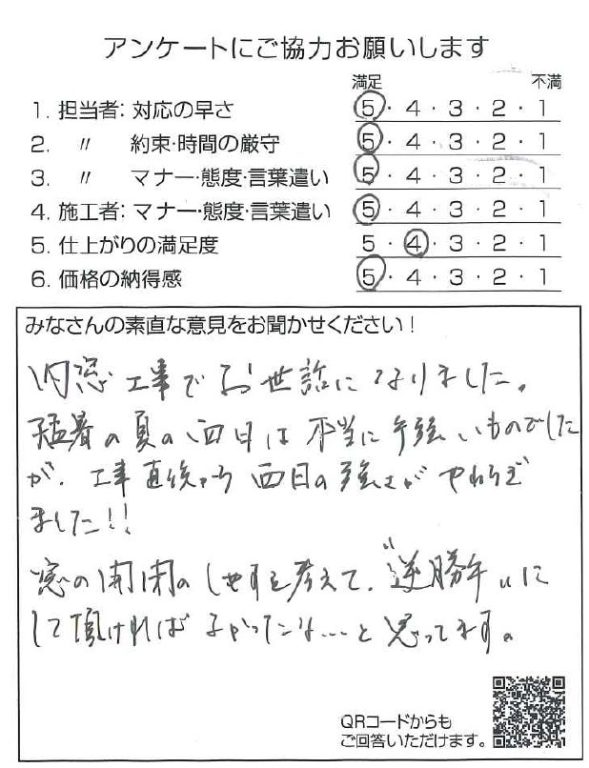 アンケートにご協力お願いします
満足 不満
1. 担当者: 対応の早さ 5・4・3・2・1
2. 〃 約束・時間の厳守 5・4・3・2・1
3. 〃 マナー・態度・言葉遣い 5・4・3・2・1
4. 施工者: マナー・態度・言葉遣い 5・4・3・2・1
5. 仕上がりの満足度 5・4・3・2・1
6. 価格の納得感 5・4・3・2・1
みなさんの素直な意見をお聞かせください!
内窓工事でお世話になりました。
猛暑の夏の西日は本当に手強いものでした
が、工事直後から西日の強さがやわらぎ
ました!!
窓の開閉のしやすさを考えて、"逆勝手"に
して頂ければよかったな…と思ってます。
QRコードからも
ご回答いただけます。